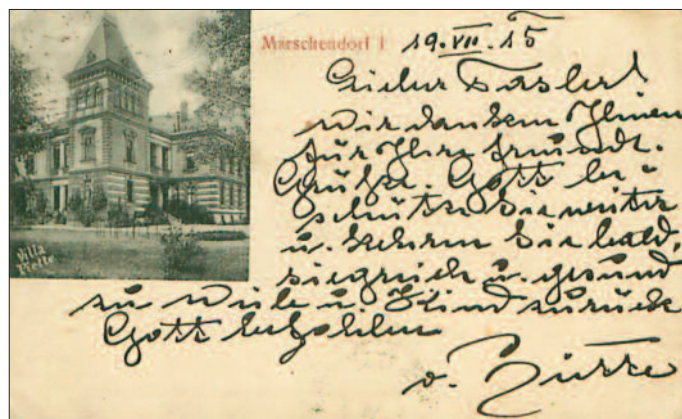 Marschendorf I 19.VII.15
Lieber Tasler!
Wir danken Ihnen
für Ihre freundl.
Grüße. Gott be=
schütze Sie weiter
u. kehren Sie bald,
siegreich u. gesund
zu Weib u. Kind zurück
Gott befohlen
v. Piette
Villa
Piette